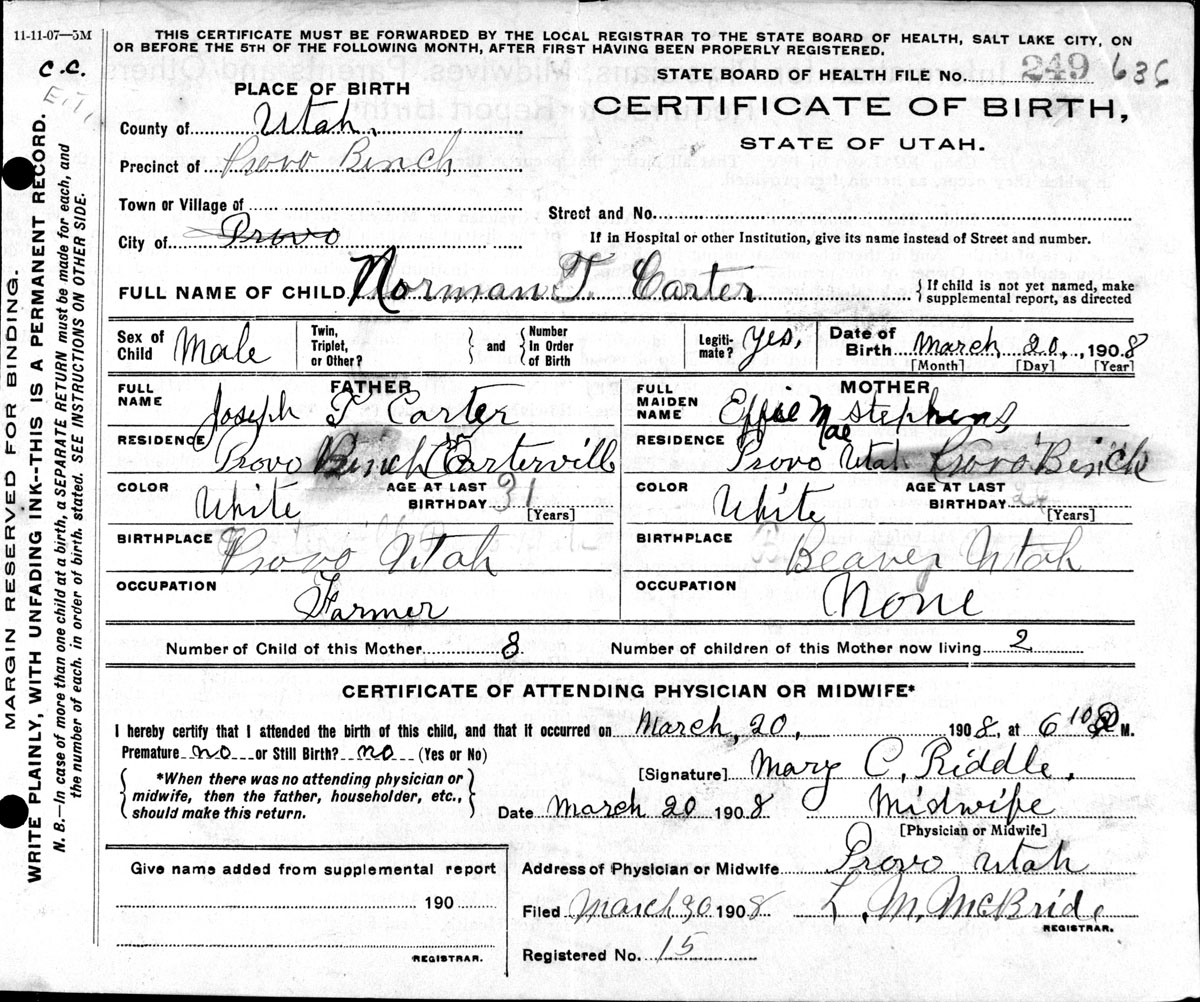 11-11-07—5M
THIS CERTIFICATE MUST BE FORWARDED BY THE LOCAL REGISTRAR TO THE STATE BOARD OF HEALTH, SALT LAKE CITY, ON
OR BEFORE THE 5TH OF THE FOLLOWING MONTH, AFTER FIRST HAVING BEEN PROPERLY REGISTERED.
C.C.
STATE BOARD OF HEALTH FILE No. 249 636
PLACE OF BIRTH
CERTIFICATE OF BIRTH,
STATE OF UTAH.
County of Utah.
Precinct of Provo Binch
Town or Village of
Street and No.
City of Provo
If in Hospital or other Institution, give its name instead of Street and number.
FULL NAME OF CHILD Norman T. Carter
{ If child is not yet named, make
supplemental report, as directed
Sex of Child Male
Twin, Triplet, or Other? } and { Number In Order of Birth
Legiti-mate? Yes,
Date of Birth March 20, 1908
[Month] [Day] [Year]
FATHER
FULL NAME Joseph T Carter
RESIDENCE Provo Binch Cartervill
COLOR White
AGE AT LAST BIRTHDAY 31
[Years]
BIRTHPLACE Provo Utah
OCCUPATION Farmer
MOTHER
FULL MAIDEN NAME Effie Mae Stephens,
RESIDENCE Provo Utah Provo Binch
COLOR White
AGE AT LAST BIRTHDAY
[Years]
BIRTHPLACE Beaver Utah
OCCUPATION None
Number of Child of this Mother 8
Number of children of this Mother now living 2
CERTIFICATE OF ATTENDING PHYSICIAN OR MIDWIFE*
I hereby certify that I attended the birth of this child, and that it occurred on March, 20, 1908, at 6 10 M.
Premature no or Still Birth? no (Yes or No)
{ *When there was no attending physician or
midwife, then the father, householder, etc.,
should make this return. }
[Signature] Mary C. Riddle.
Date March 20 1908 Midwife
[Physician or Midwife]
Give name added from supplemental report
190
REGISTRAR.
Address of Physician or Midwife Provo Utah
Filed March 30 1908 L. M. McBride
REGISTRAR.
Registered No. 15
MARGIN RESERVED FOR BINDING.
WRITE PLAINLY, WITH UNFADING INK--THIS IS A PERMANENT RECORD.
N. B.—In case of more than one child at a birth, a SEPARATE RETURN must be made for each, and
the number of each, in order of birth, stated. SEE INSTRUCTIONS ON OTHER SIDE.